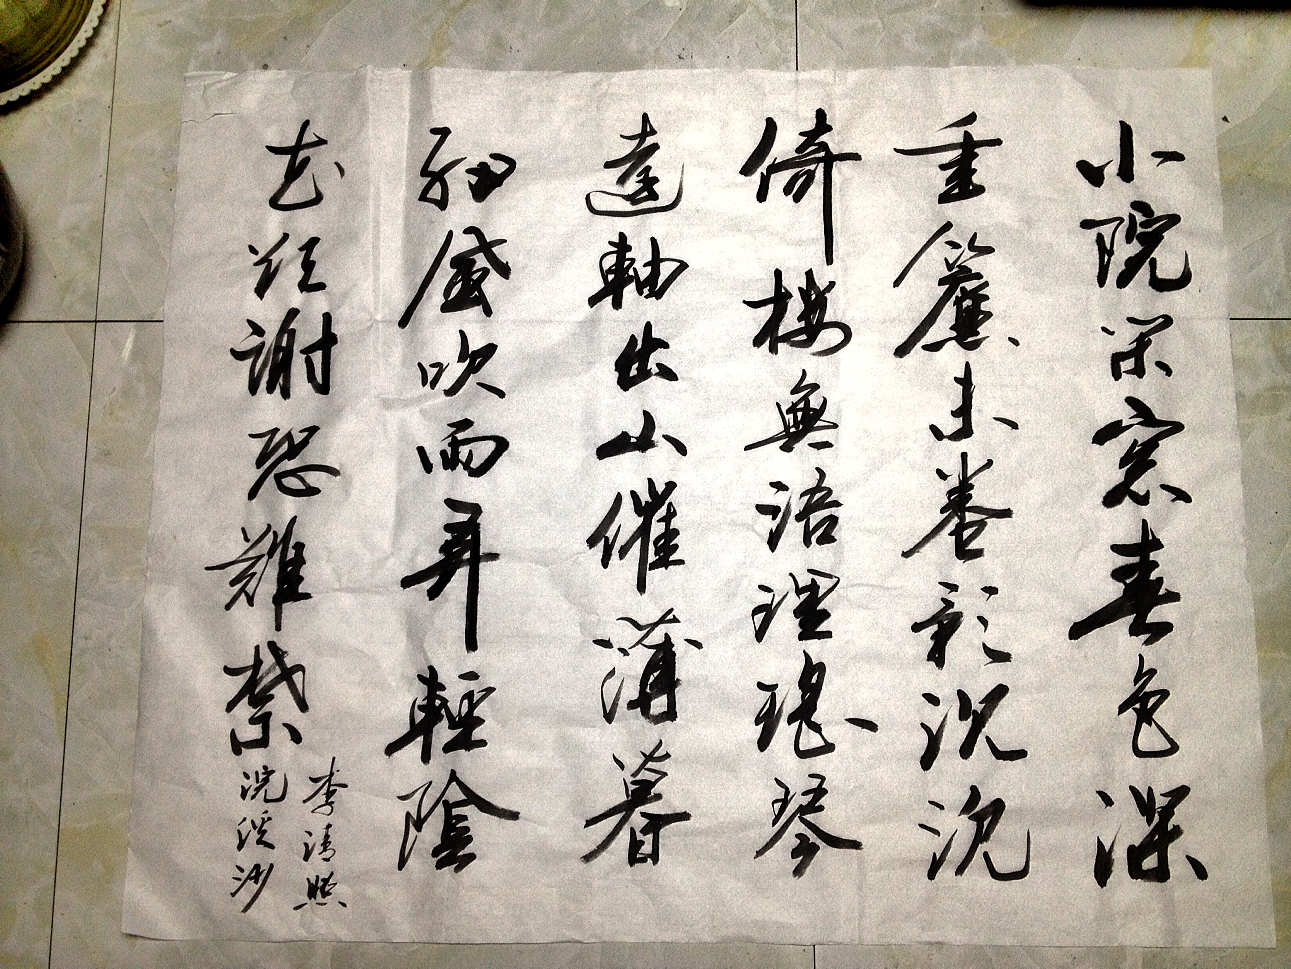 小院閑窓春色深
重簾未卷影沉沉
倚樓無語理瑤琴
遠軸出山催薄暮
細風吹雨弄輕陰
花欲謝恐難禁
李清照
浣溪沙